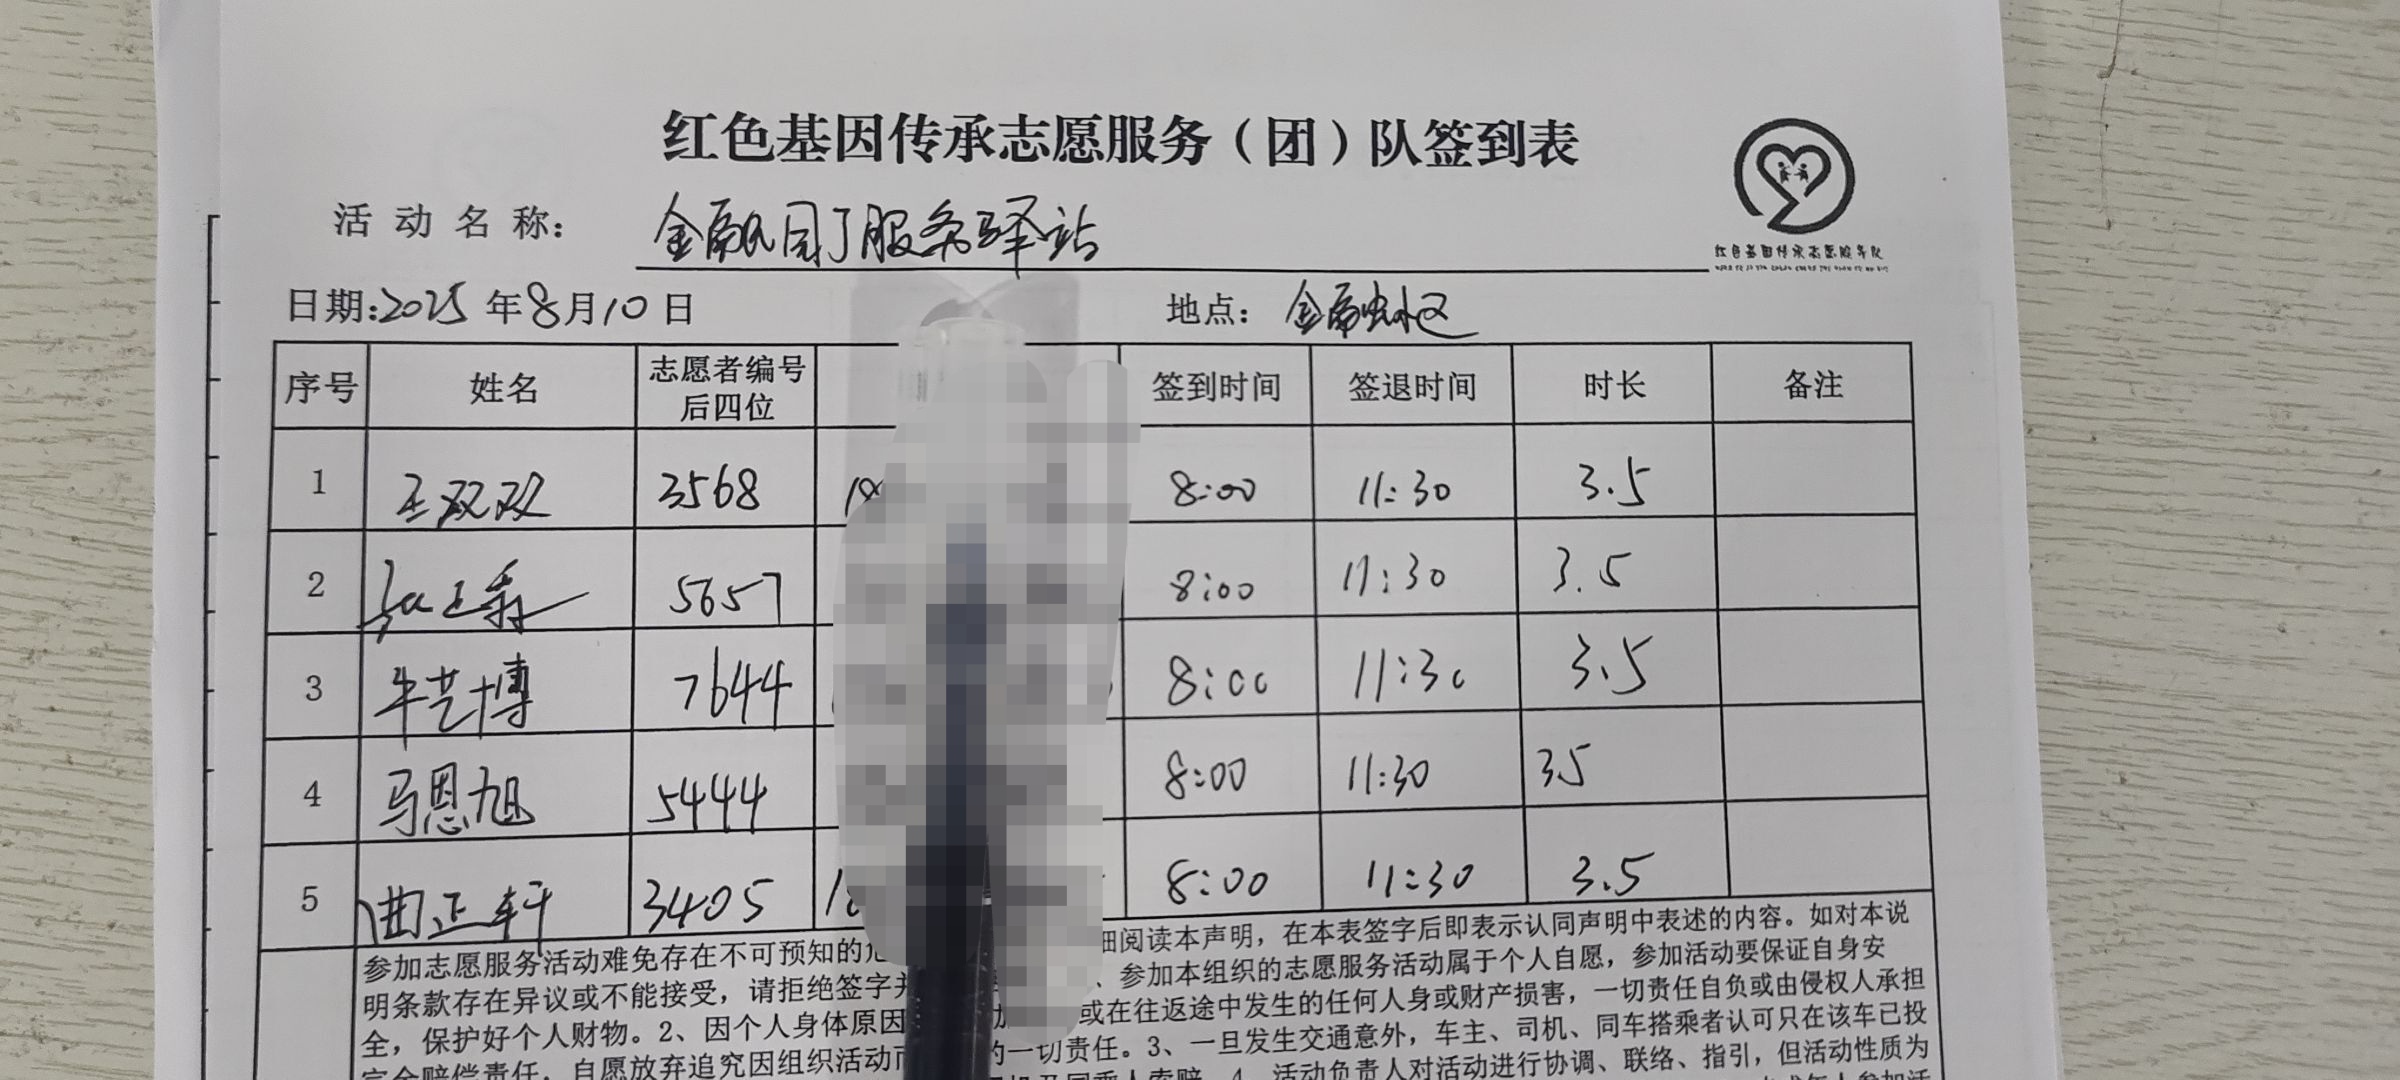 红色基因传承志愿服务（团）队签到表
红色基因传承志愿服务队
活动名称： 金融园丁服务驿站
日期:2025年8月10日 地点： 金融小区
序号 姓名 志愿者编号后四位 签到时间 签退时间 时长 备注
1 王双双 3568 18 8:00 11:30 3.5
2 5657 8:00 11:30 3.5
3 牛艺博 7644 8:00 11:30 3.5
4 马恩旭 5444 8:00 11:30 35
5 曲正轩 3405 18 8:00 11:30 3.5
参加志愿服务活动难免存在不可预知的危 细阅读本声明，在本表签字后即表示认同声明中表述的内容。如对本说
明条款存在异议或不能接受，请拒绝签字并 、参加本组织的志愿服务活动属于个人自愿，参加活动要保证自身安
全，保护好个人财物。2、因个人身体原因 或在往返途中发生的任何人身或财产损害，一切责任自负或由侵权人承担
完全赔偿责任，自愿放弃追究因组织活动而 的一切责任。3、一旦发生交通意外，车主、司机、同车搭乘者认可只在该车已投
4、活动负责人对活动进行协调、联络、指引，但活动性质为